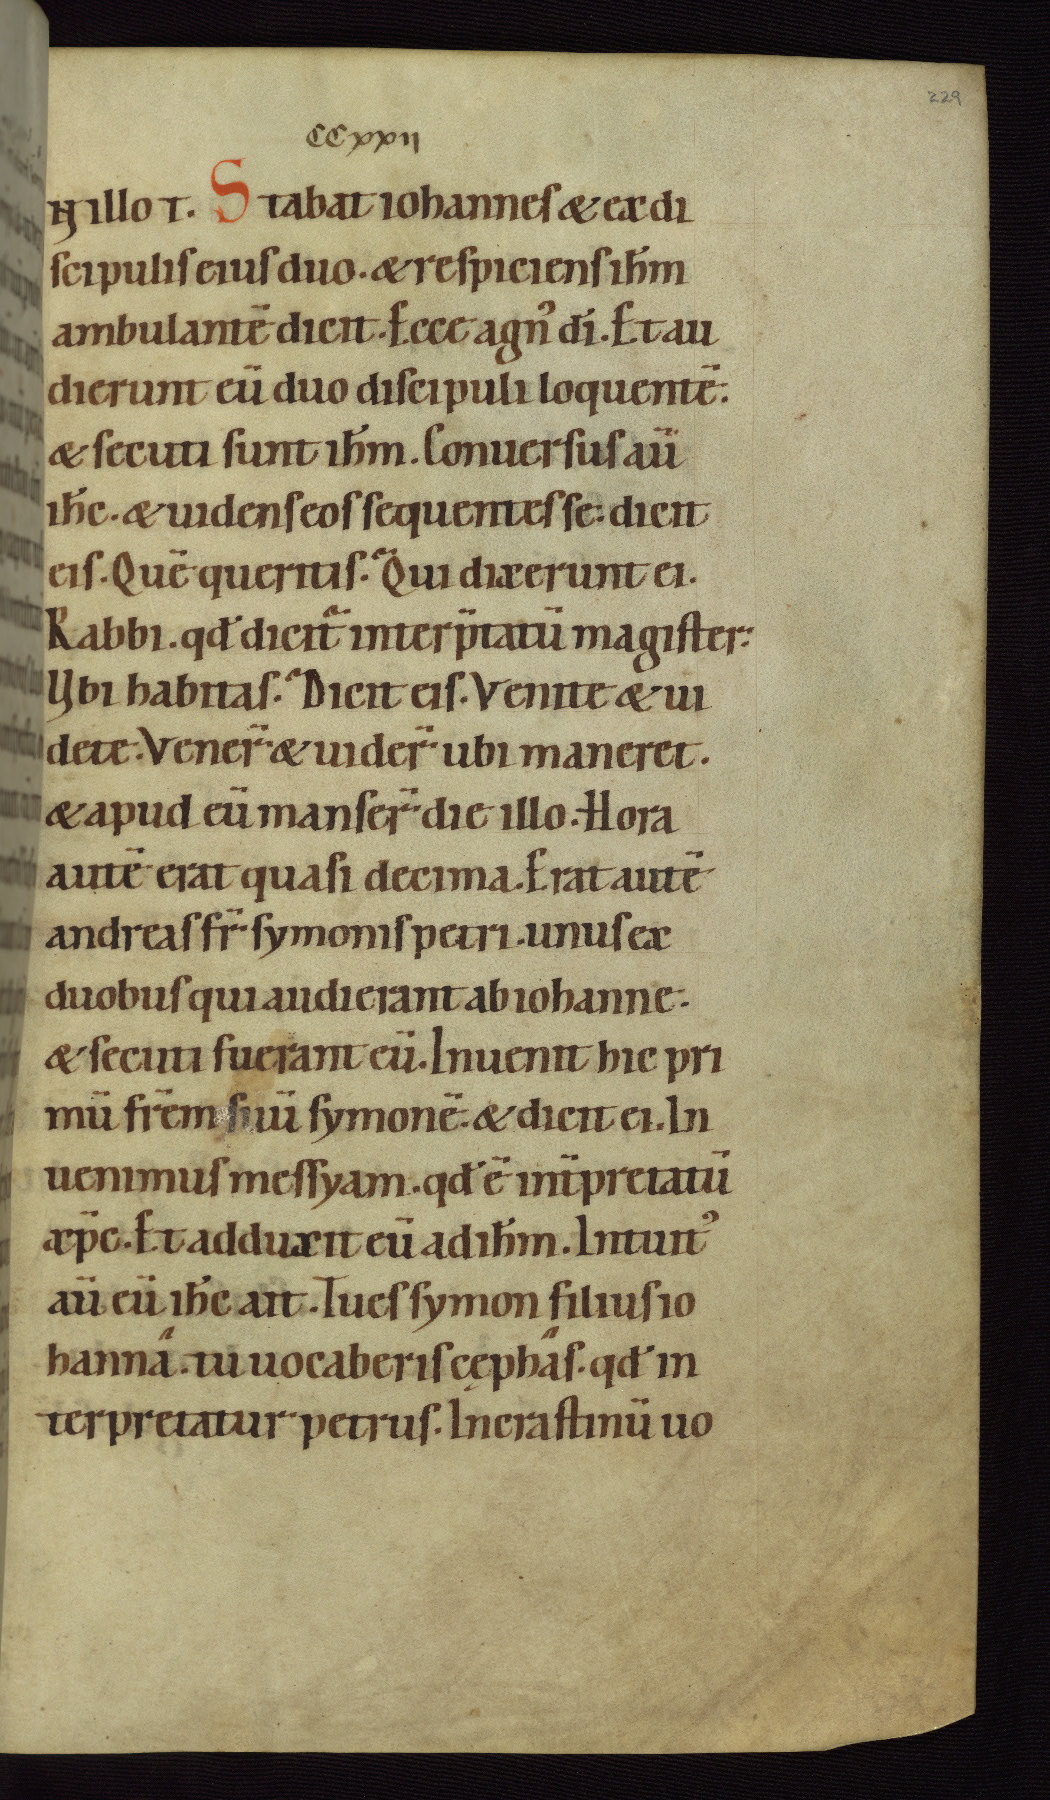 229
CCxxii
N illo T. Stabat iohannes & ex di
scipulis eius duo. & respiciens ih̄m
ambulantē dicit. Ecce agn᾽ dī. Et au
dierunt eū duo discipuli loquentē.
& secuti sunt ih̄m. Conuersus aū
ih̄c. & uidens eos sequentes se: dicit
eis. Quē queritis. Qui dixerunt ei.
Rabbi. qđ dicit᷑ interp̄tatū magister:
Vbi habitas. Dicit eis. Venite & ui
dete. Vener̄ & uider̄ ubi maneret.
& apud eū manser̄ die illo. Hora
autē erat quasi decima. Erat autē
andreas fr̄ symonis petri. unus ex
duobus qui audierant ab iohanne.
& secuti fuerant eū. Inuenit hic pri
mū fr̄em suū symonē. & dicit ei. In
uenimus messyam. qđ ē int̄pretatū
xp̄c. Et adduxit eū ad ih̄m. Intuit᾽
aū eū ih̄c ait. Tu es symon filius io
hanna. tu uocaberis cęphas. qđ in
terpretatur petrus. In crastinū uo